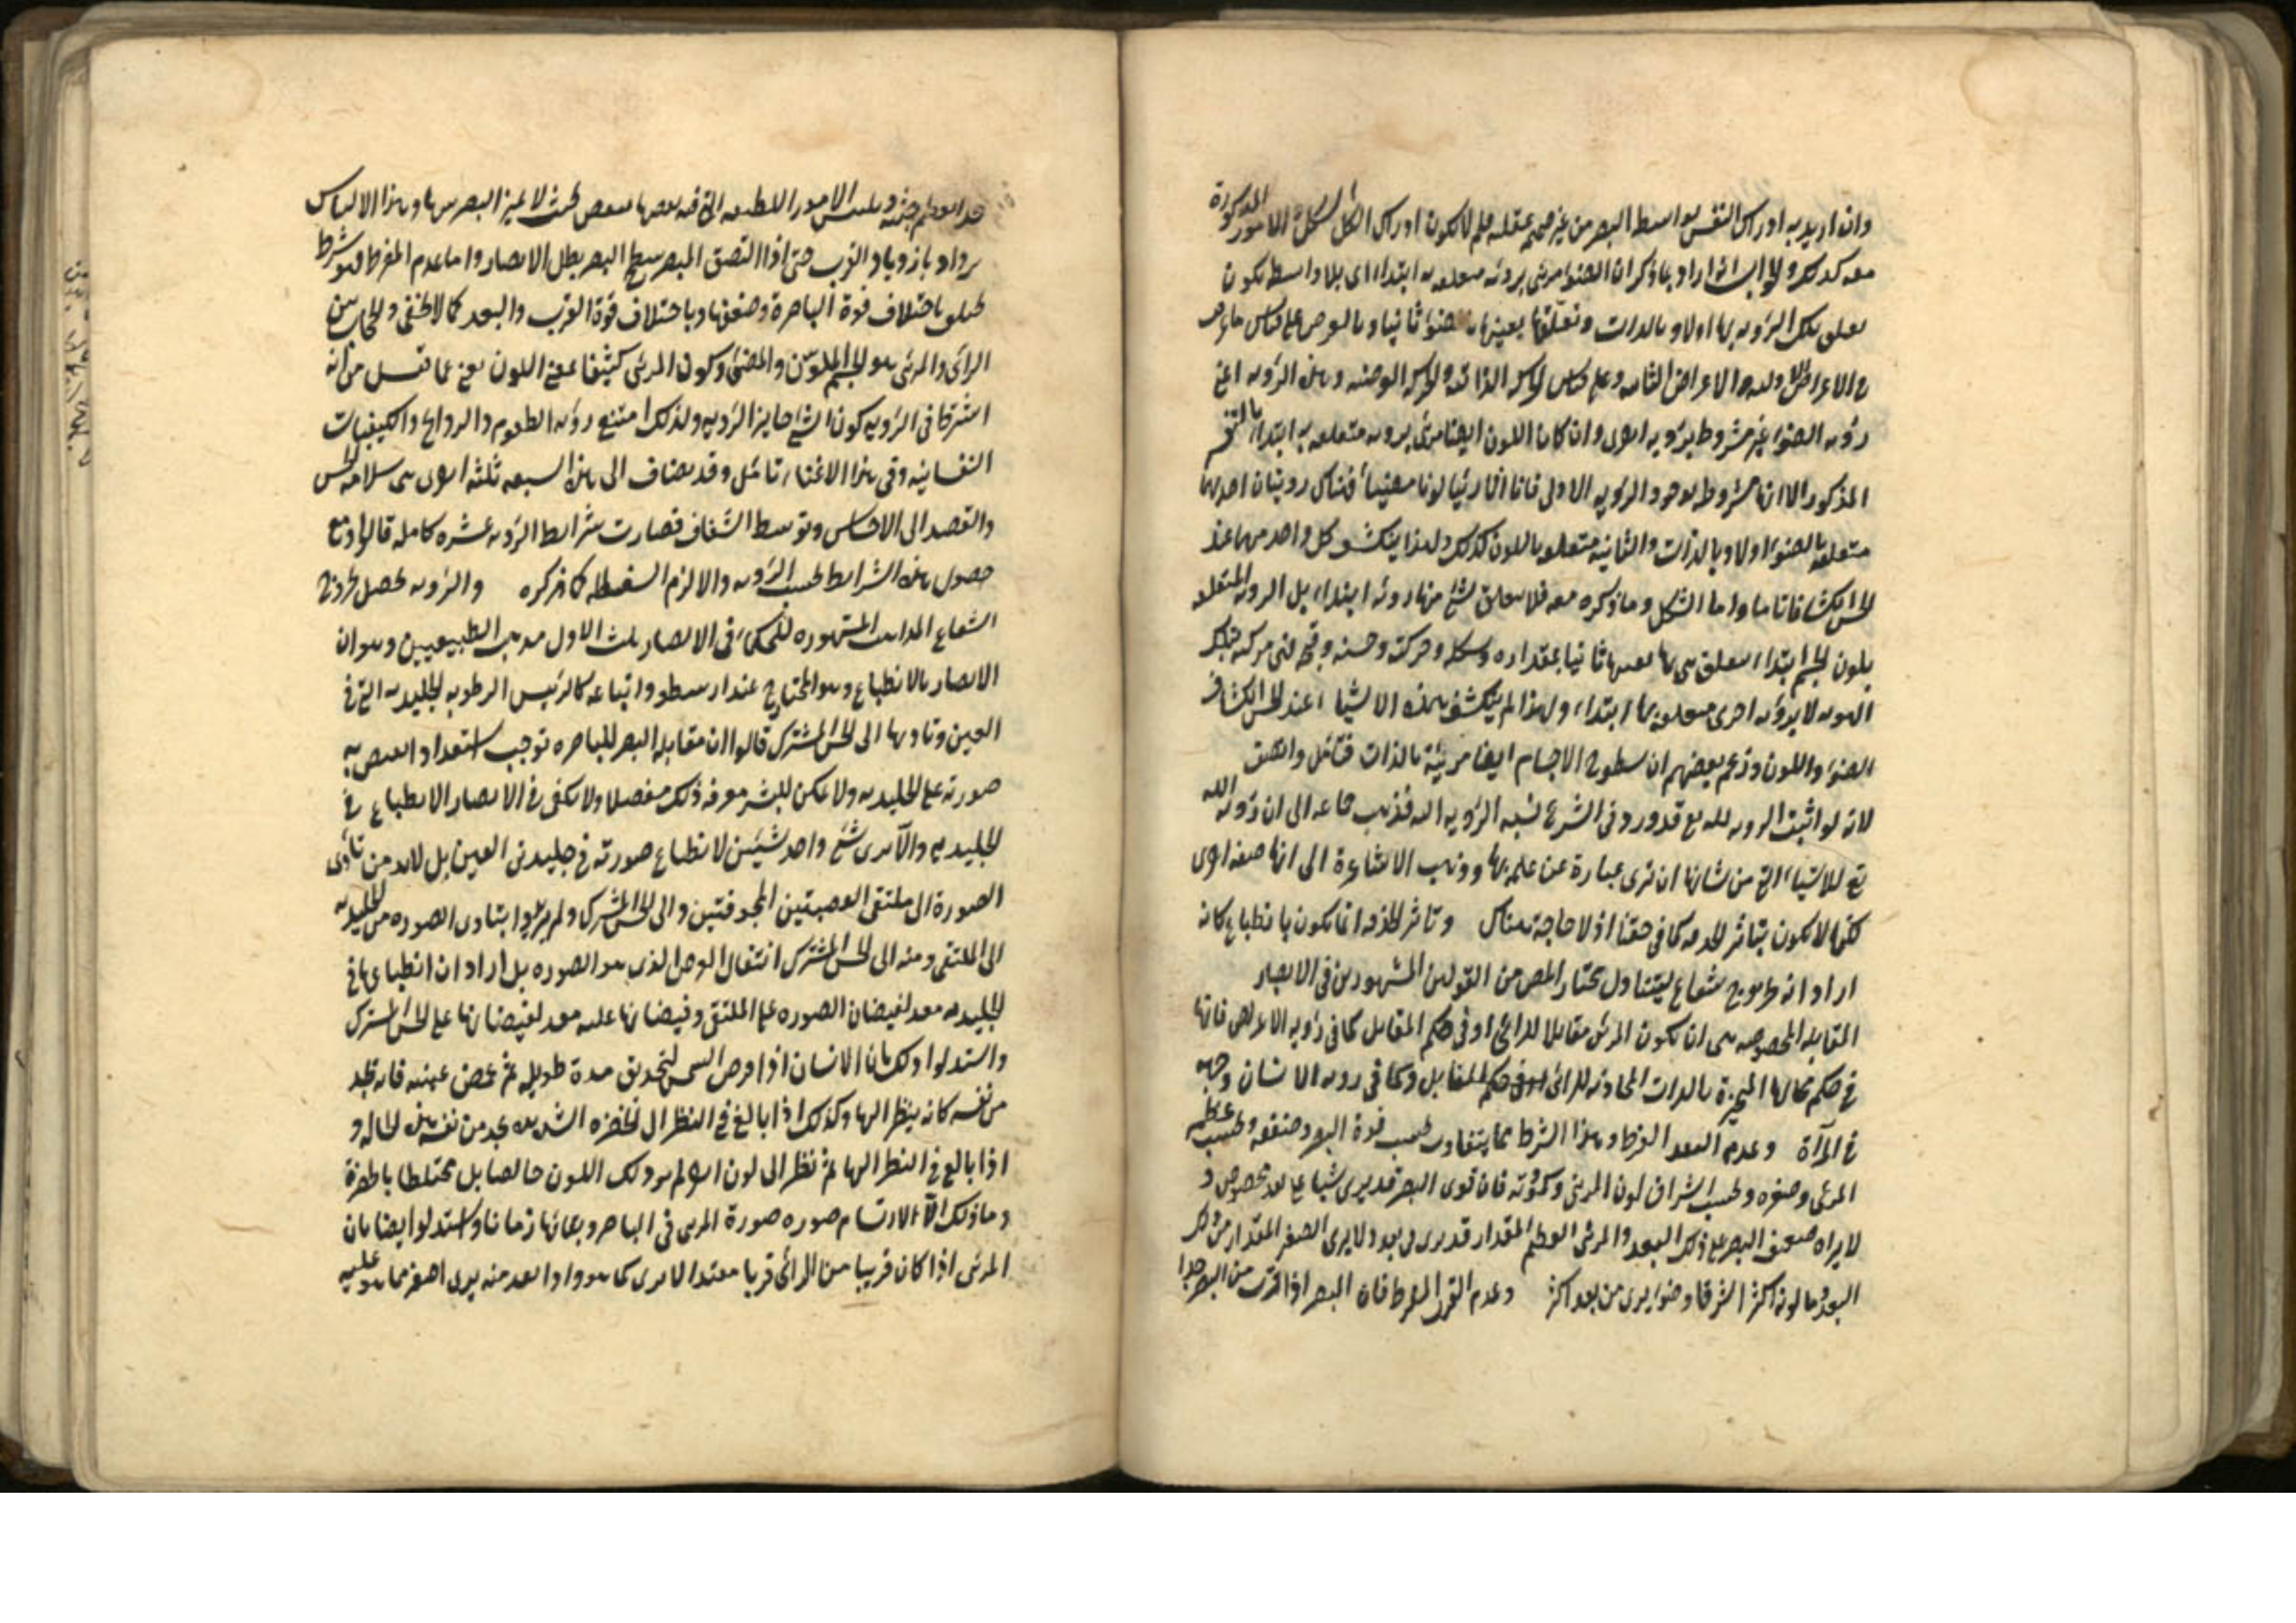 وان اريد به ادراك النفس بواسطة البصر من غير عقله فلم لا يكون ادراك الشكل الامور المذكورة
معه كذلك والجواب انه اراد بما ذكر ان الضوء مرئى برؤية متعلقة به ابتداء اى بلا واسطة يكون
تعلق تلك الرؤية بها اولا وبالذات وتعلقها بعينها ثانيا وبالعرض على قياس
وعلى قياس الحركة الذاتية والحركة العرضية وهذه الرؤية اعنى
رؤية الضوء غير مشروط برؤية اخرى وان كان اللون ايضا مرئى برؤية متعلقة به ابتداء
المذكور الا انها مشروطة بوجود الرؤية الاولى فانا اذا رئينا لونا مضيئا فهناك رؤيتان احديهما
متعلقة بالضوء اولا وبالذات والثانية متعلقة باللون كذلك ولهذا ينكشف كل واحد منهما عند
الحس انكشافا تاما واما الشكل وما ذكره معه فلا يتعلق بشئ منها رؤية ابتداء بل الرؤية المتعلقة
بلون الجسم ابتداء يتعلق هى بها بعينها ثانيا بمقداره وشكله وحركته وحسنه وقبحه فهى مرئية بتلك
الرؤية لا برؤية اخرى متعلقة بها ابتداء ولهذا لم ينكشف هذه الاشياء عند الحس انكشاف
الضوء واللون وزعم بعضهم ان سطوح الاجسام ايضا مرئية بالذات
لانه لو اثبت الرؤية لله تع قد ورد فى الشرع نسبة الرؤية اليه فذهب جماعة الى ان رؤية الله
تع للاشياء التى من شانها ان ترى عبارة عن علمه بها وذهب الاشاعرة الى انها صفة اخرى
لكنها لا يكون بتاثر الحدقة كما فى حقنا اذ لا حاجة هناك وتاثر الحدقة انما يكون بانطباع كانه
اراد انه او خروج شعاع ليتناول مختار المص من القولين المشهورين فى الابصار
المقابلة المخصوصة هى ان يكون المرئى مقابلا للرائى او فى حكم المقابل كما فى رؤية الاعراض فانها
فى حكم محالها المتحيزة بالذات المحاذية للرائى او فى حكم المقابل وكما فى رؤية الانسان وجهه
فى المرآة وعدم البعد المفرط وهذا الشرط مما يتفاوت بحسب قوة البصر وضعفه وبحسب عظم
المرئى وصغره وبحسب اشراق لون المرئى وكمودته فان قوى البصر قد يرى شيئا على بعد مخصوص و
لا يراه ضعيف البصر على ذلك البعد والمرئى العظيم المقدار قد يرى فى بعد ولا يرى الصغير المقدار من ذلك
البعد وما لونه اكثر اشراقا وضوء يرى من بعد اكثر وعدم القرب المفرط فان المبصر اذا قرب من البصر جدا
الامور اللطيفة التى فيه بعضها ببعض بحيث لا يميز البصر بينها وهذا الالتباس
يزداد بازدياد القرب حتى اذا التصق المبصر بسطح البصر بطل الابصار واما عدم المفرط فهو شرط
يختلف باختلاف قوة الباصرة وضعفها وباختلاف قوة القرب والبعد كما لا يخفى والحجاب بين
الرائى والمرئى هو الجسم الملون والمضئ وكون المرئى كثيفا يعنى اللون يغنى عما قيل من انه
اشترط فى الرؤية كون الشئ جايز الرؤية ولذلك امتنع رؤية الطعوم والروايح والكيفيات
النفسانية وفى هذا الاغناء تامل وقد يضاف الى هذه السبعة ثلثة اخرى هى سلامة الحس
والقصد الى الاحساس وتوسط الشفاف فصارت شرايط الرؤية عشرة كاملة قالوا ومع
حصول هذه الشرايط يجب الرؤية والا لزم السفسطة كما ذكره والرؤية يحصل بخروج
الشعاع المذاهب المشهورة للحكماء فى الابصار ثلث الاول مذهب الطبيعيين وهو ان
الابصار بالانطباع وهو المختار عند ارسطو واتباعه كالرئيس الرطوبة الجليدية التى فى
العين وتاديها الى الحس المشترك قالوا ان مقابلة المبصر للباصرة توجب استعدادا يفيض به
صورته على الجليدية ولا يمكن للبشر معرفة ذلك مفصلا ولا يكفى فى الابصار الانطباع فى
الجليدية والا يرى شئ واحد شيئين لانطباع صورته فى جليديتى العينين بل لابد من تادى
الصورة الى ملتقى العصبتين المجوفتين والى الحس المشترك ولم يريدوا بتادى الصورة من الجليدية
الى الملتقى ومنه الى الحس المشترك انتقال العرض الذى هو الصورة بل اراد ان انطباعها فى
الجليدية معد لفيضان الصورة على الملتقى وفيضانها عليه معد لفيضانها على الحس المشترك
واستدلوا بان الانسان اذا قرص الشمس بتحديق مدة طويلة ثم غمض عينيه فانه يجد
من نفسه كانه ينظر اليها وكذلك اذا بالغ فى النظر الى الخضرة الشديدة يجد من نفسه هذه الحالة و
اذا بالغ فى النظر اليها ثم نظر الى لون اخر لم ير ذلك اللون خالصا بل مختلطا بالخضرة
وما ذلك الا لارتسام صورة المرئى فى الباصرة وبقائها زمانا واستدلوا ايضا بان
المرئى اذا كان قريبا من الرائى قربا معتدلا يرى كما هو واذا بعد منه يرى اصغر مما هو عليه